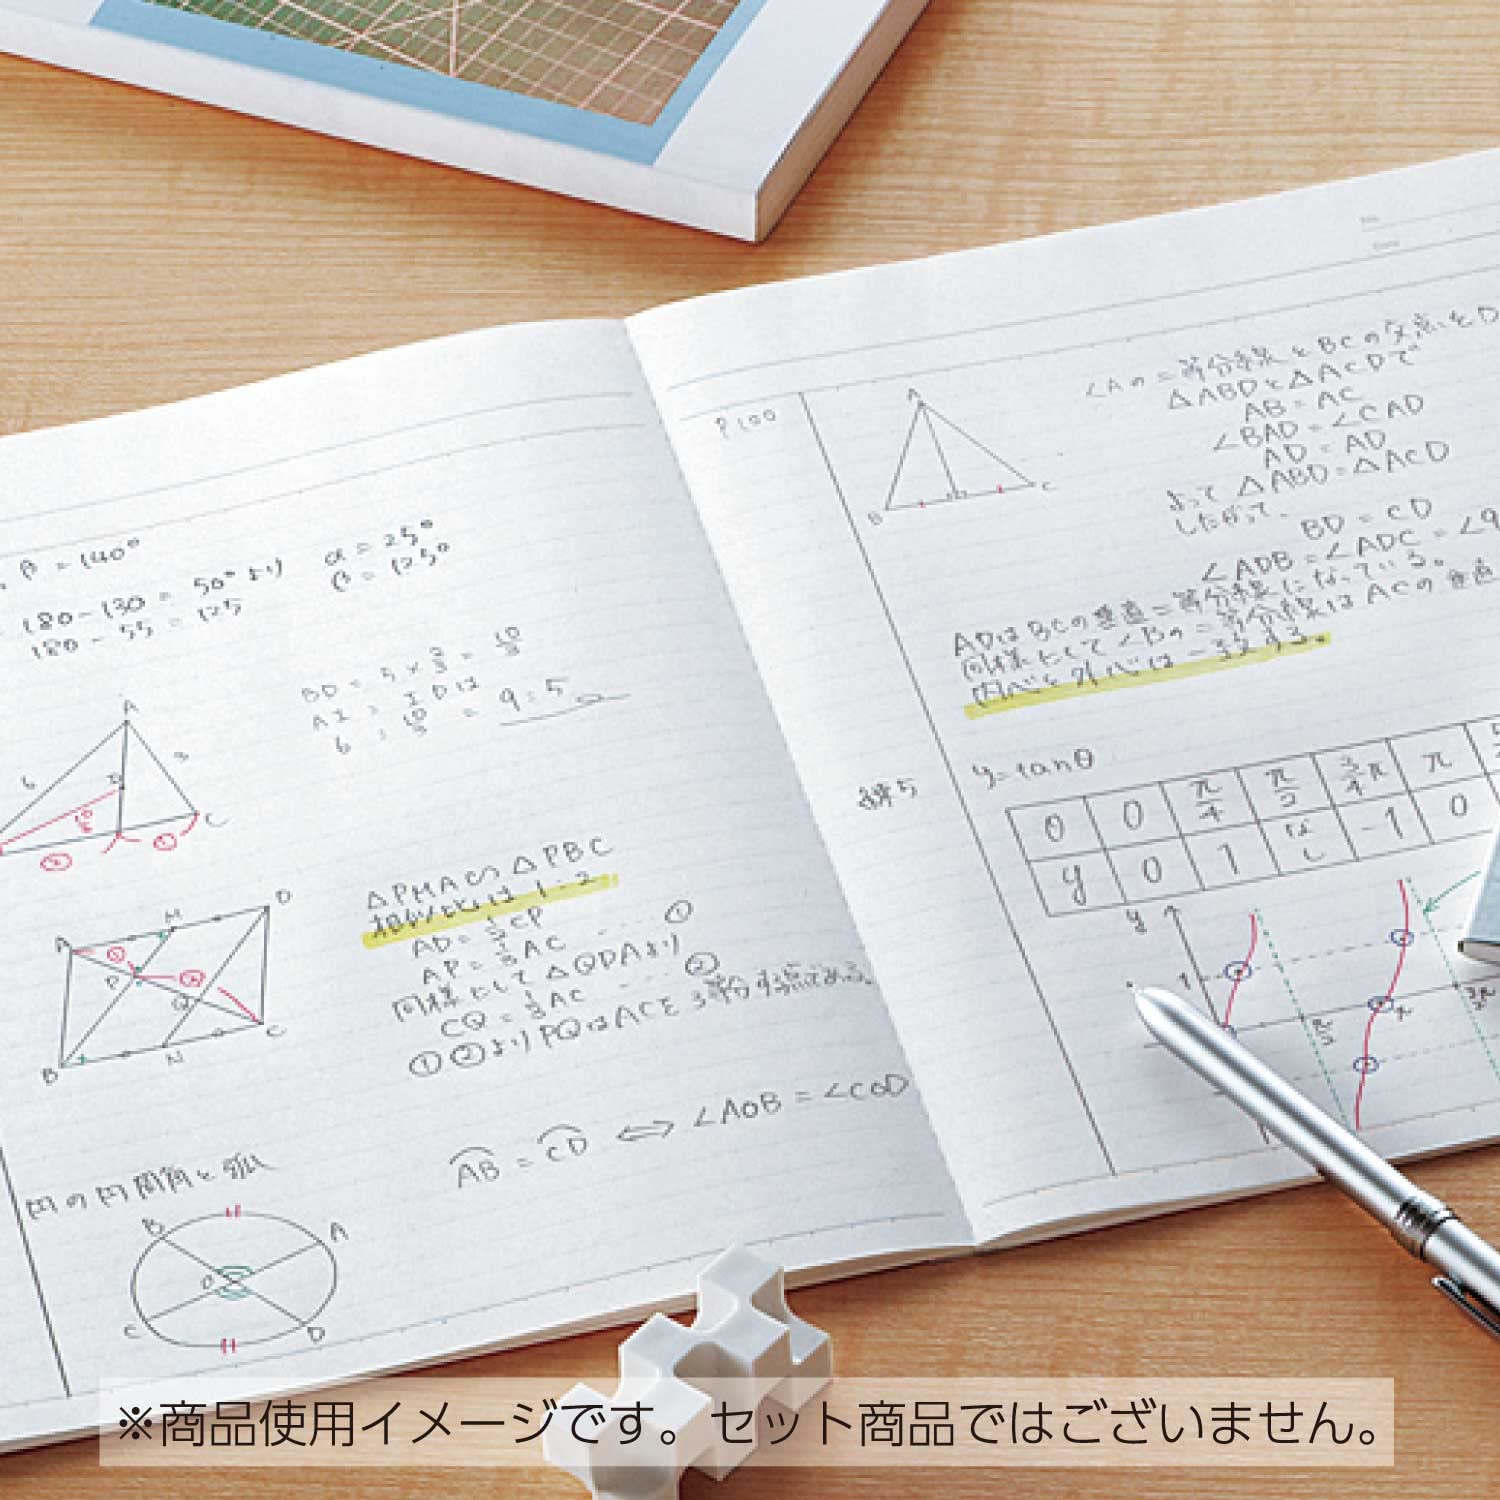 β = 140°
180 - 130 = 50° より
180 - 55 = 125
α = 25°
β = 125°
BD = 5 × 2/3 = 10/3
AI : IDは
6 : 10/3 = 9:5
A
6
3
C
②
①
A
M
D
①
P
②
Q
B
N
C
△PMA∽△PBC
相似比は 1:2
AP = 1/2 CP
AP = 1/3 AC ‥‥ ①
同様にして △QDAより
CQ = 1/3 AC ‥‥ ②
①②より PQはACを3等分する点である。
円の円周角と弧
AB = CD ⇔ ∠AOB = ∠COD
B
A
O
C
D
No.
Date
P100
A
B
D
C
∠Aの二等分線とBCの交点をD
△ABDと△ACDで
AB = AC
∠BAD = ∠CAD
AD = AD
よって △ABD = △ACD
したがって、
BD = CD
∠ADB = ∠ADC = ∠9
ADはBCの垂直二等分線になっている。
同様にして ∠Bの二等分線はACの垂直
内心と外心は一致する。
y = tanθ
θ 0 π/4 π/2 3/4π π
y 0 1 なし -1 0
y
1
π/2
π
※商品使用イメージです。セット商品ではございません。